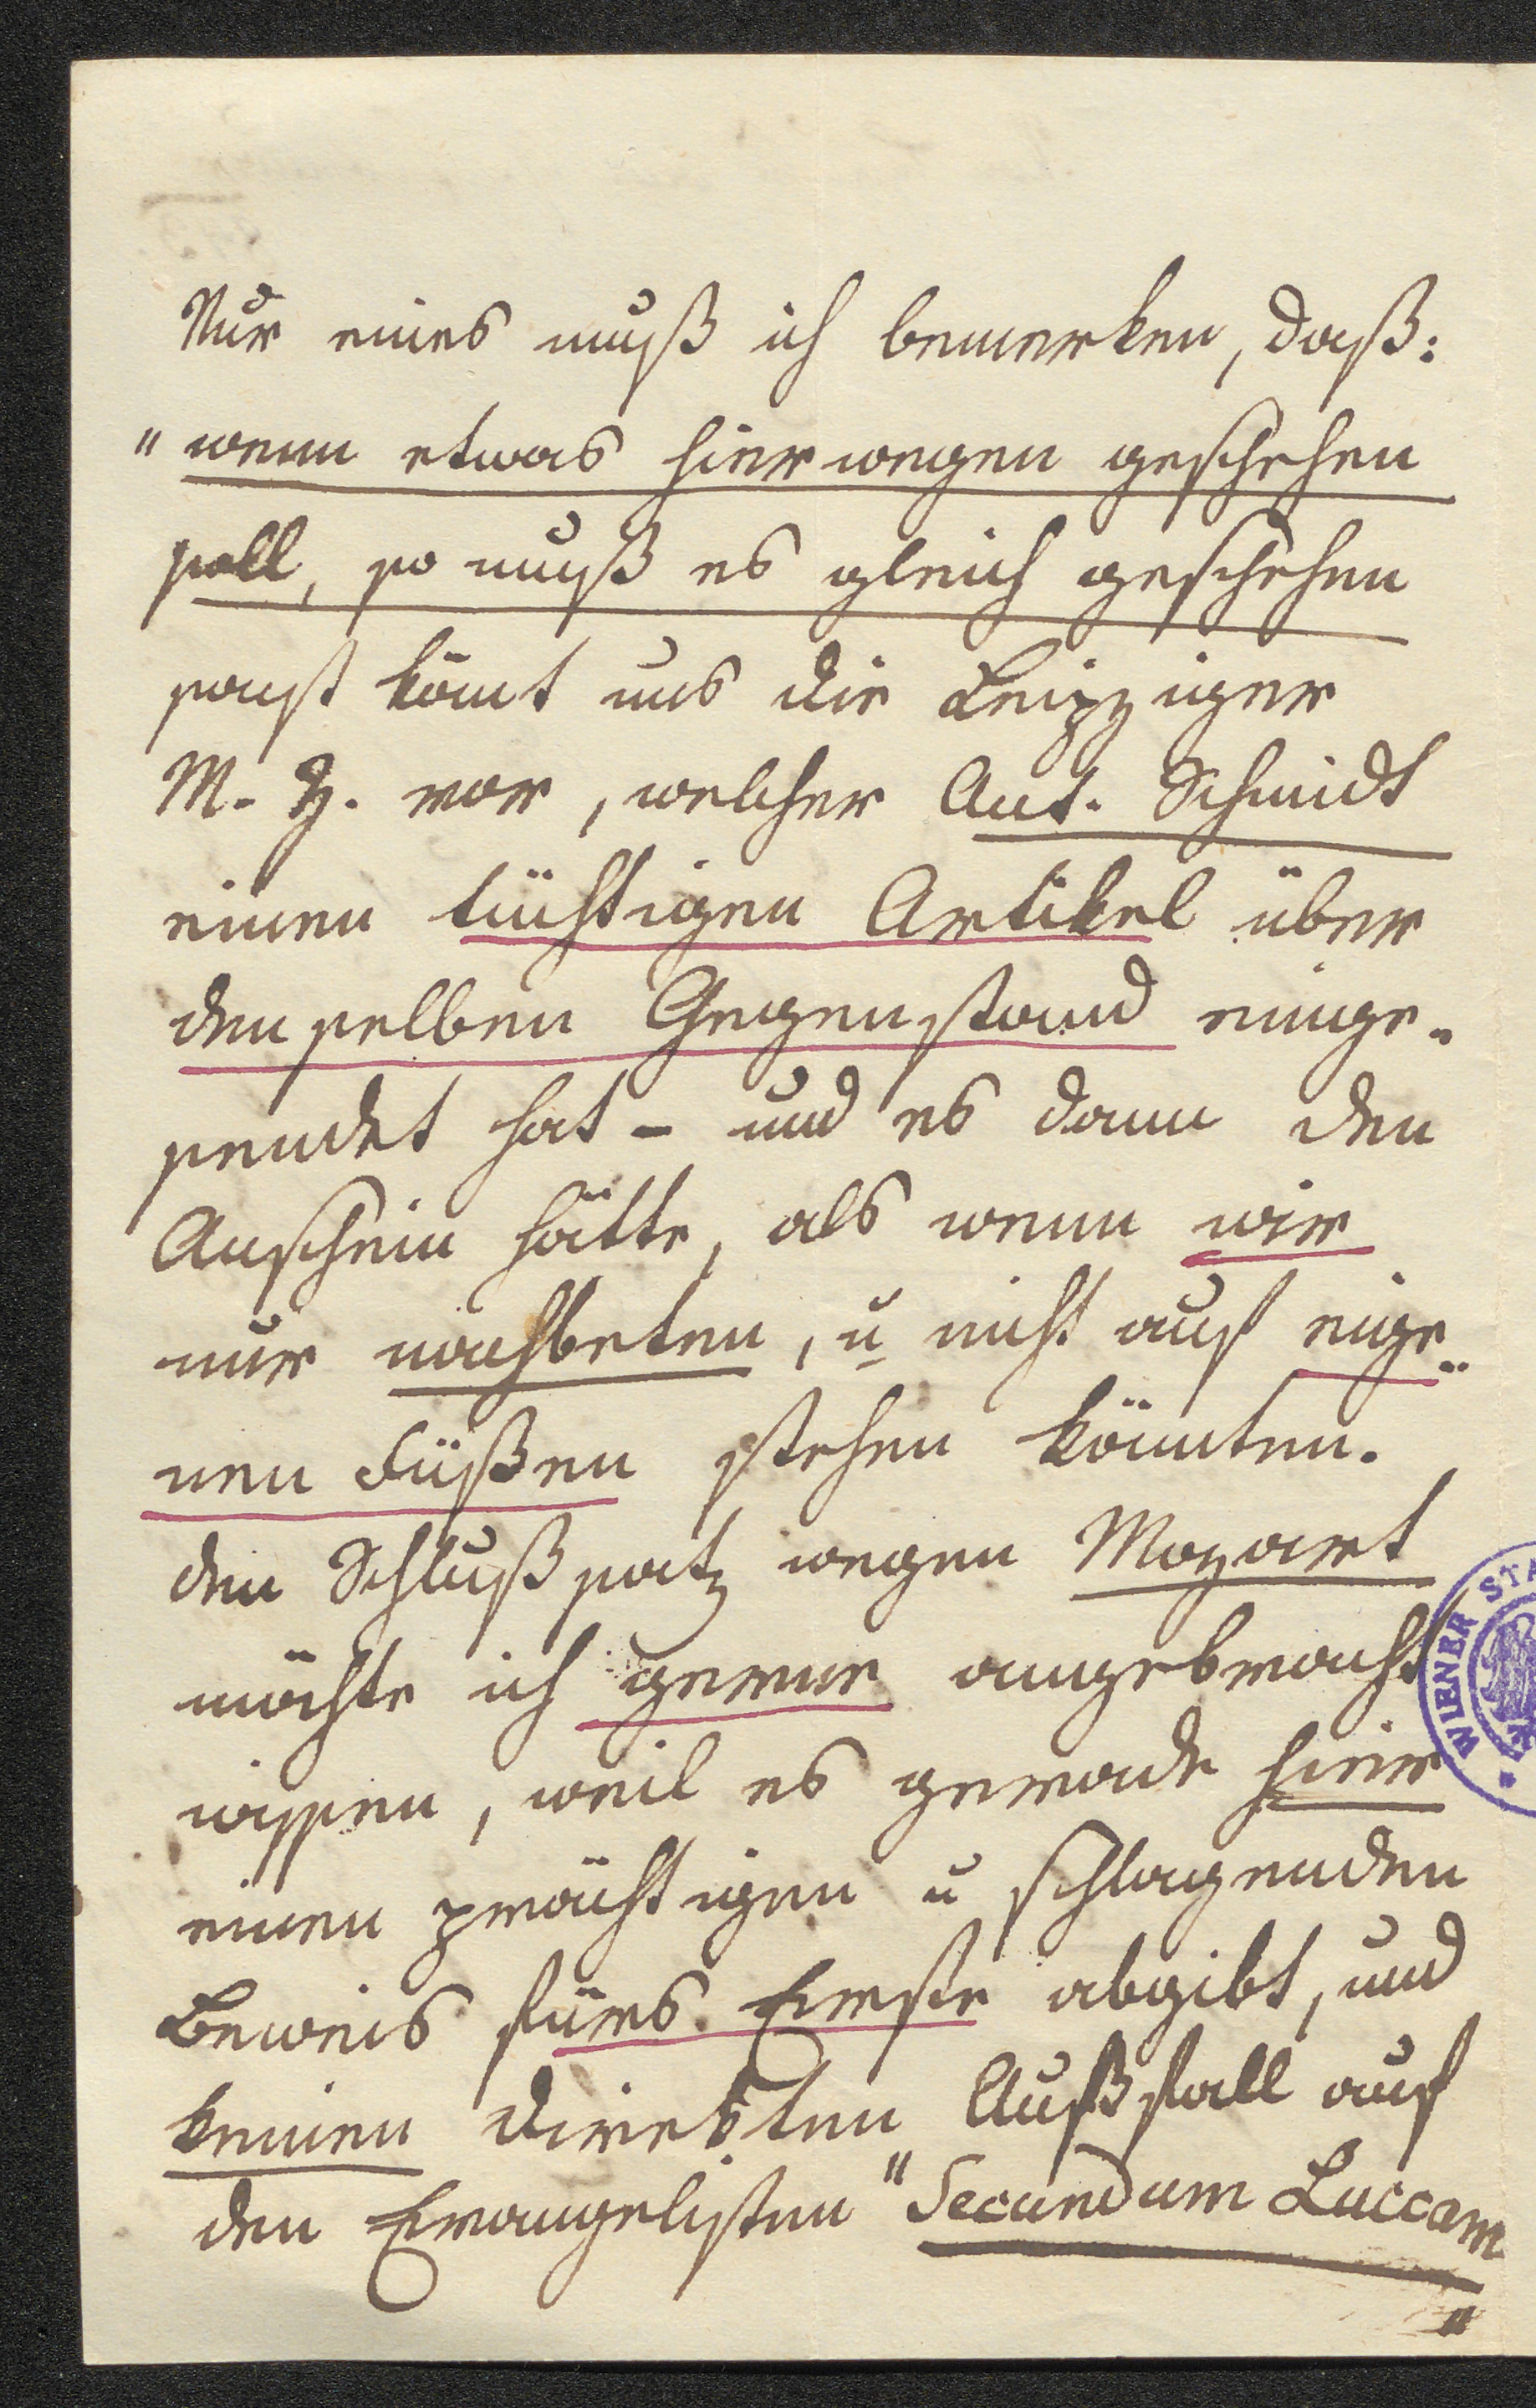 Nur eines muß ich bemerken, daß:
"wenn etwas hierwegen geschehen
soll, so muß es gleich geschehen
sonst kom̄t uns die Leipziger
M. Z. vor, welcher Ant. Schmidt
einen tüchtigen Artikel über
denselben Gegenstand einge-
sendet hat – und es dann den
Anschein hätte, als wenn wir
nur nachbeten, u nicht auf eige-
nen Füßen stehen könnten.
den Schlußsatz wegen Mozart
möchte ich gerne angebracht
wissen, weil es gerade hier
einen prächtigen u schlagenden
Beweis fürs Erste abgibt, und
keinen direkten Ausfall auf
den Evangelisten "Secundum Luccam
"
WIENER STA